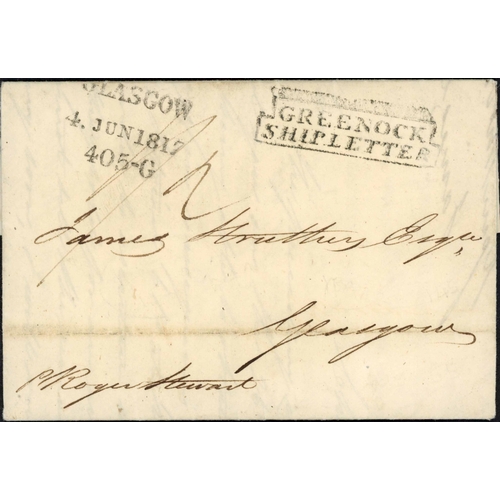 GLASGOW
4. JUN 1817
405-G
GREENOCK
SHIP LETTER
James Struthers Esqr.
Glasgow
p Roger Stewart